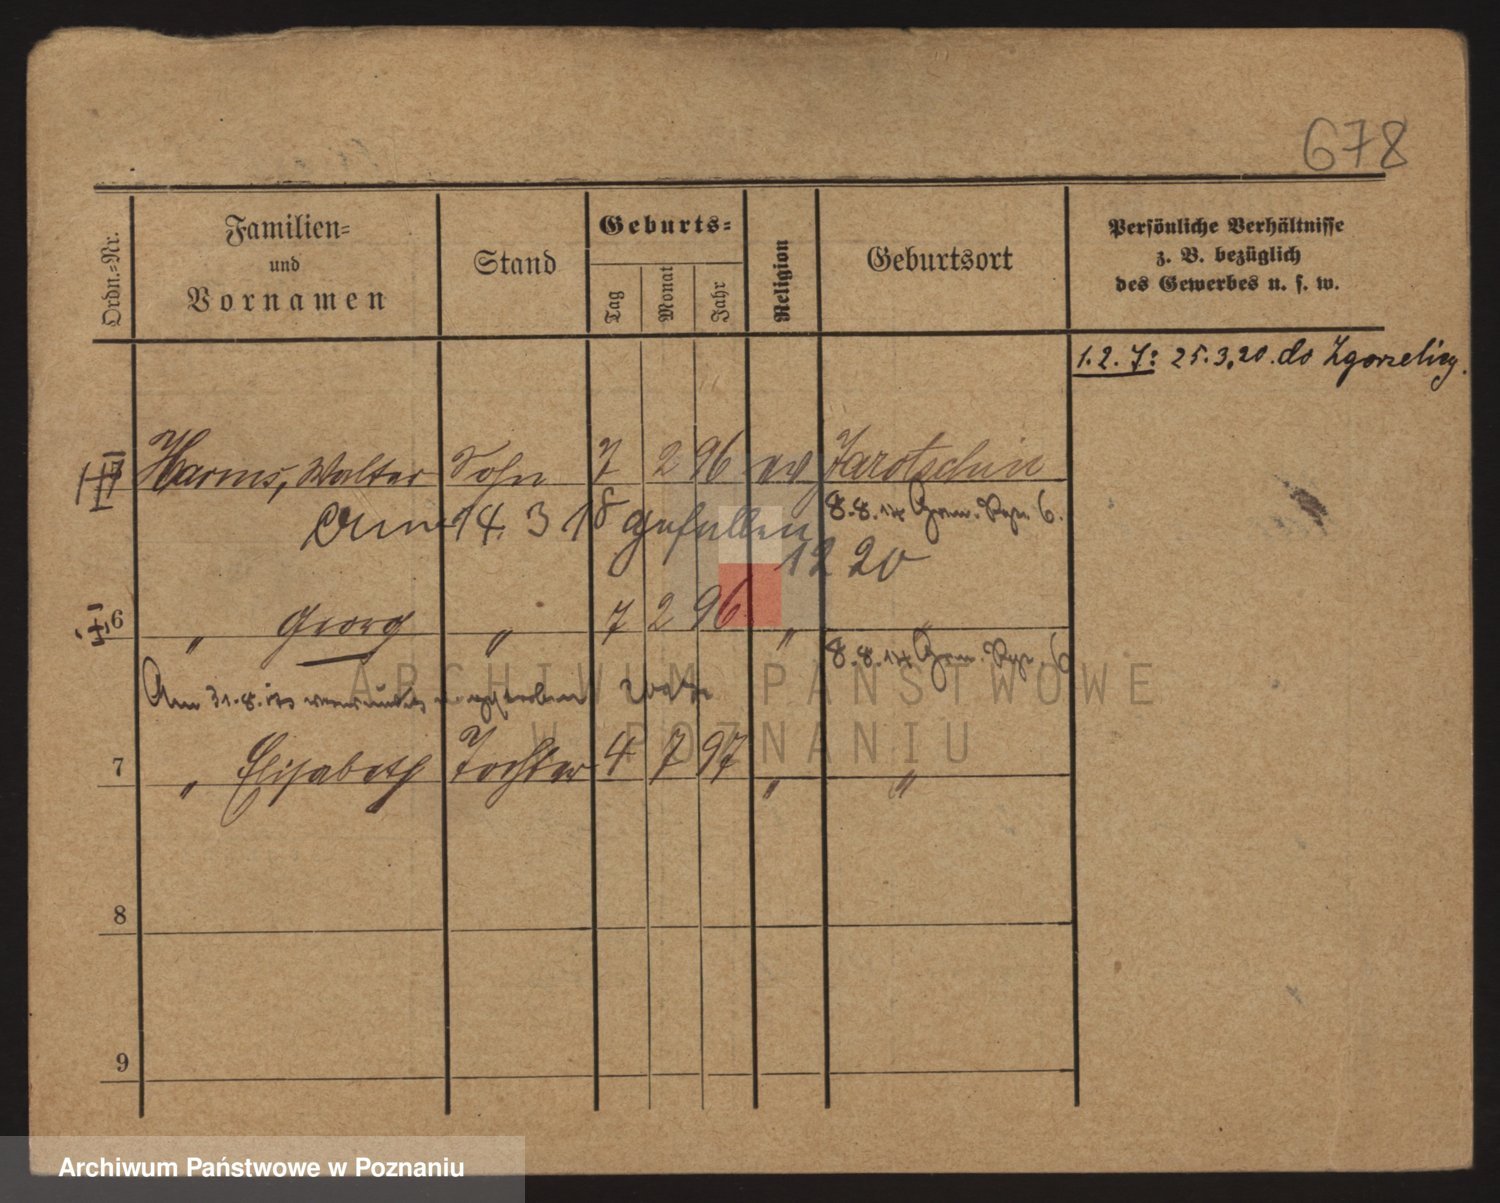 678
Ordn.=Nr.
Familien=
und
Vornamen
Stand
Geburts=
Tag
Monat
Jahr
Religion
Geburtsort
Persönliche Verhältnisse
z. B. bezüglich
des Gewerbes u. s. w.
1. 2. 7: 25.3.20. do Zgorzelicy.
Harms, Walter Sohn 7 2 96 ev Jarotschin
8.8.14 Gren. Rgt. 6.
Am 14. 3 18 gefallen
12 20
6 " Georg " 7 2 96 " "
8.8.14 Gren. Rgt. 6
Am 31.8. verwundet gestorben
7 " Elisabeth Tochter 4 7 97 " "
8
9
ARCHIWUM PAŃSTWOWE
W POZNANIU
Archiwum Państwowe w Poznaniu